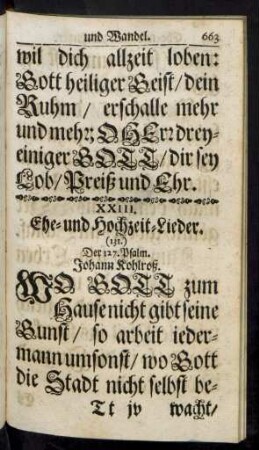 und Wandel. 663
wil dich allzeit loben:
Gott heiliger Geist/dein
Ruhm/ erschalle mehr
und mehr; O HErr drey-
einiger GOTT/dir sey
Lob/Preiß und Ehr.
XXIII.
Ehe-und Hochzeit-Lieder.
(131.)
Der 127. Psalm.
Johann Kohlroß.
WO GOTT zum
Hause nicht gibt seine
Gunst/ so arbeit ieder-
mann umsonst/ wo Gott
die Stadt nicht selbst be-
Tt jv wacht/